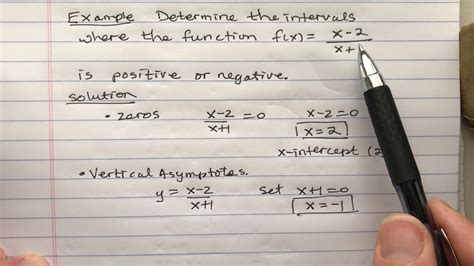 Example Determine the intervals
where the function f(x) = x-2 / x+
is positive or negative.
Solution
• zeros x-2 / x+1 = 0 x-2=0
x=2
x-intercept (2
• Vertical Asymptotes.
y = x-2 / x+1 set x+1=0
x=-1